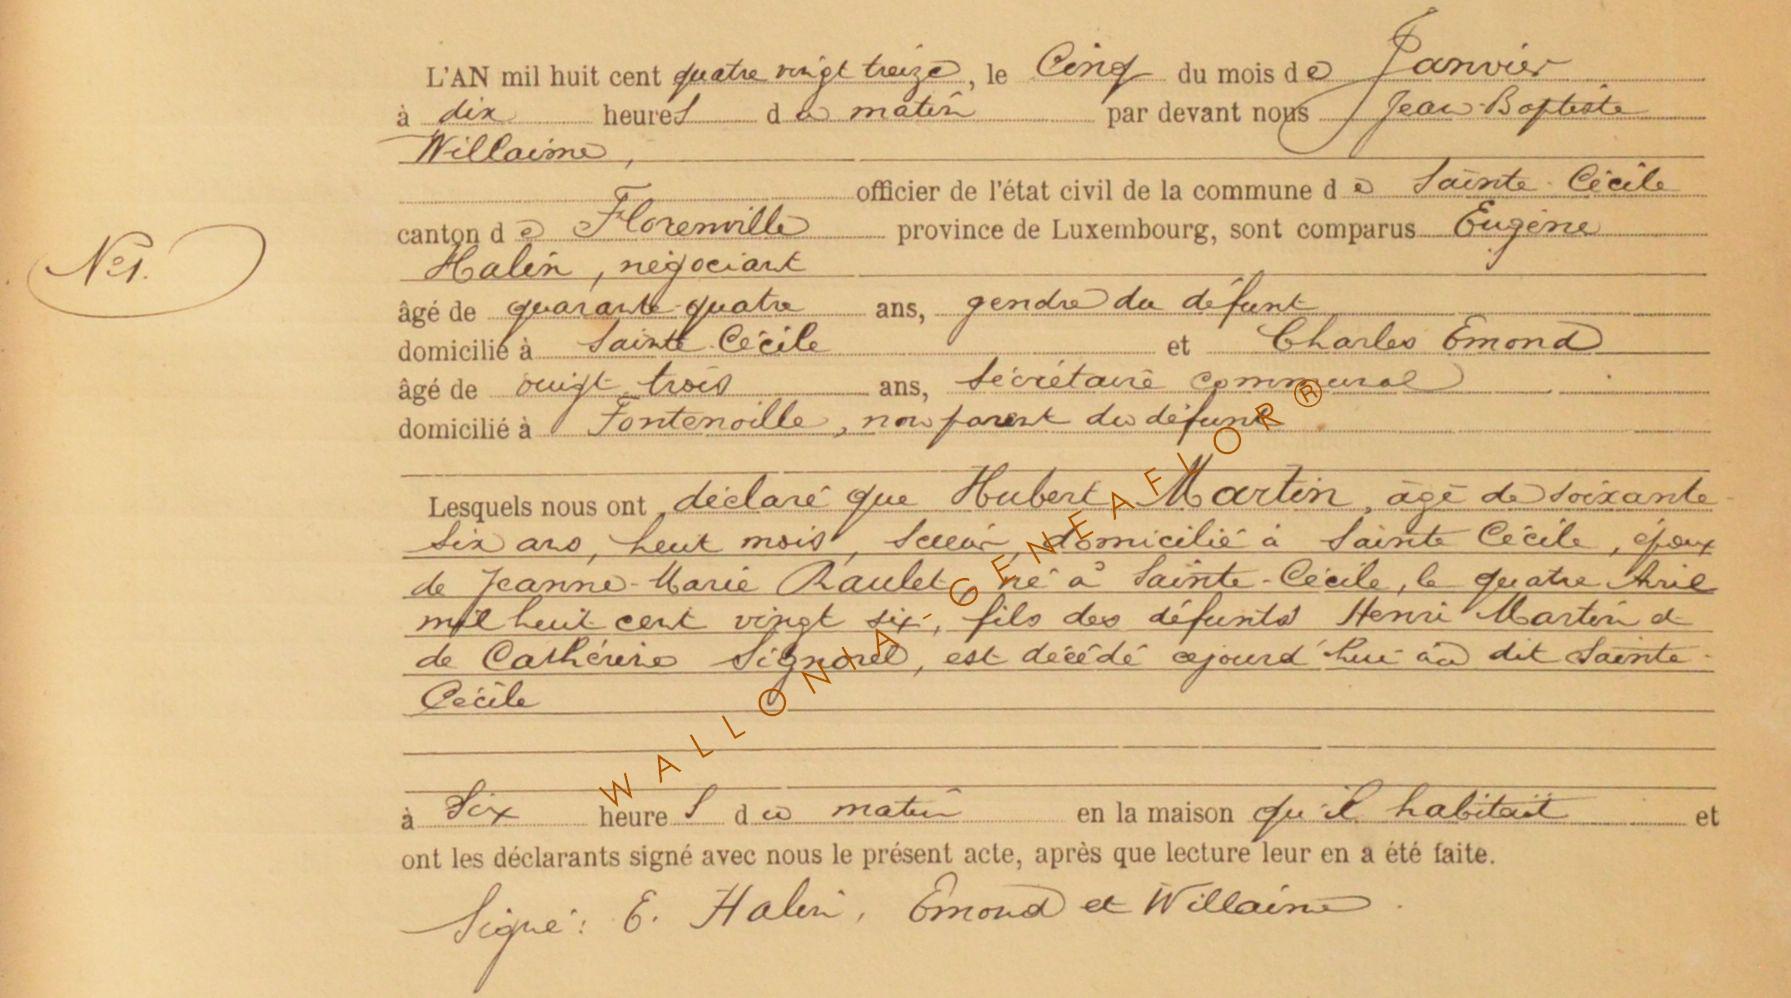 L'AN mil huit cent quatre vingt treize, le Cinq du mois de Janvier
à dix heures du matin par devant nous Jean-Baptiste
Willaime,
officier de l'état civil de la commune de Sainte-Cécile
canton de Florenville province de Luxembourg, sont comparus Eugène
Halin, négociant
N° 1.
âgé de quarante-quatre ans, gendre du défunt
domicilié à Sainte Cécile et Charles Emond
âgé de vingt trois ans, Sécrétaire communal
domicilié à Fontenoille, non parent du défunt
Lesquels nous ont déclaré que Hubert Martin, âgé de soixante-
six ans, huit mois, domicilié à Sainte Cécile, époux
de Jeanne-Marie Raulet né à Sainte-Cécile, le quatre Avril
mil huit cent vingt six, fils des défunts Henri Martin et
de Cathérine Signorel, est décédé cejourd'hui au dit Sainte-
Cécile
à Six heures du matin en la maison qu'il habitait et
ont les déclarants signé avec nous le présent acte, après que lecture leur en a été faite.
Signé: E. Halin, Emond et Willaime.
WALLONIA-GENEAFLOR®